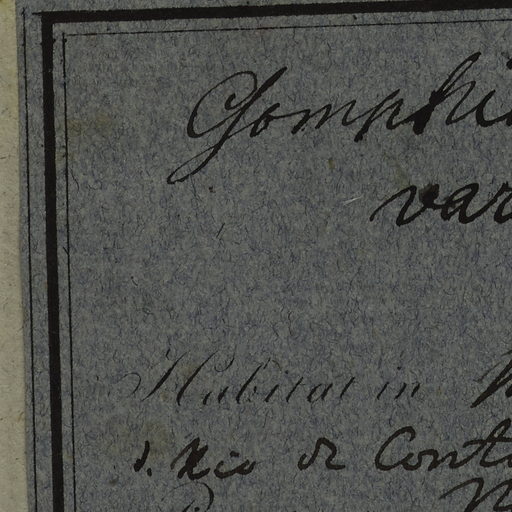 Gomphi
var
Habitat in
d. Rio de Conta